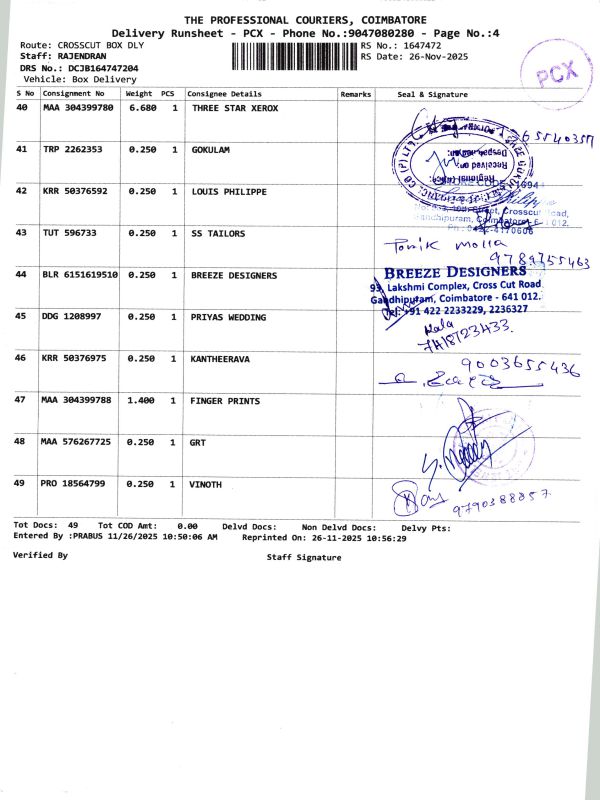 THE PROFESSIONAL COURIERS, COIMBATORE
Delivery Runsheet - PCX - Phone No.:9047080280 - Page No.:4
Route: CROSSCUT BOX DLY
RS No.: 1647472
Staff: RAJENDRAN
RS Date: 26-Nov-2025
DRS No.: DCJB164747204
Vehicle: Box Delivery
PCX
S No Consignment No Weight PCS Consignee Details Remarks Seal & Signature
40 MAA 304399780 6.680 1 THREE STAR XEROX
41 TRP 2262353 0.250 1 GOKULAM
42 KRR 50376592 0.250 1 LOUIS PHILIPPE
Crosscut Road,
Gandhipuram, Coimbatore
43 TUT 596733 0.250 1 SS TAILORS
9789755463
44 BLR 6151619510 0.250 1 BREEZE DESIGNERS
BREEZE DESIGNERS
93, Lakshmi Complex, Cross Cut Road
Gandhipuram, Coimbatore - 641 012.
Tel: +91 422 2233229, 2236327
45 DDG 1208997 0.250 1 PRIYAS WEDDING
Kala
7418723433
46 KRR 50376975 0.250 1 KANTHEERAVA
9003655436
47 MAA 304399788 1.400 1 FINGER PRINTS
48 MAA 576267725 0.250 1 GRT
49 PRO 18564799 0.250 1 VINOTH
9790388857
Tot Docs: 49 Tot COD Amt: 0.00 Delvd Docs: Non Delvd Docs: Delvy Pts:
Entered By :PRABUS 11/26/2025 10:50:06 AM Reprinted On: 26-11-2025 10:56:29
Verified By Staff Signature